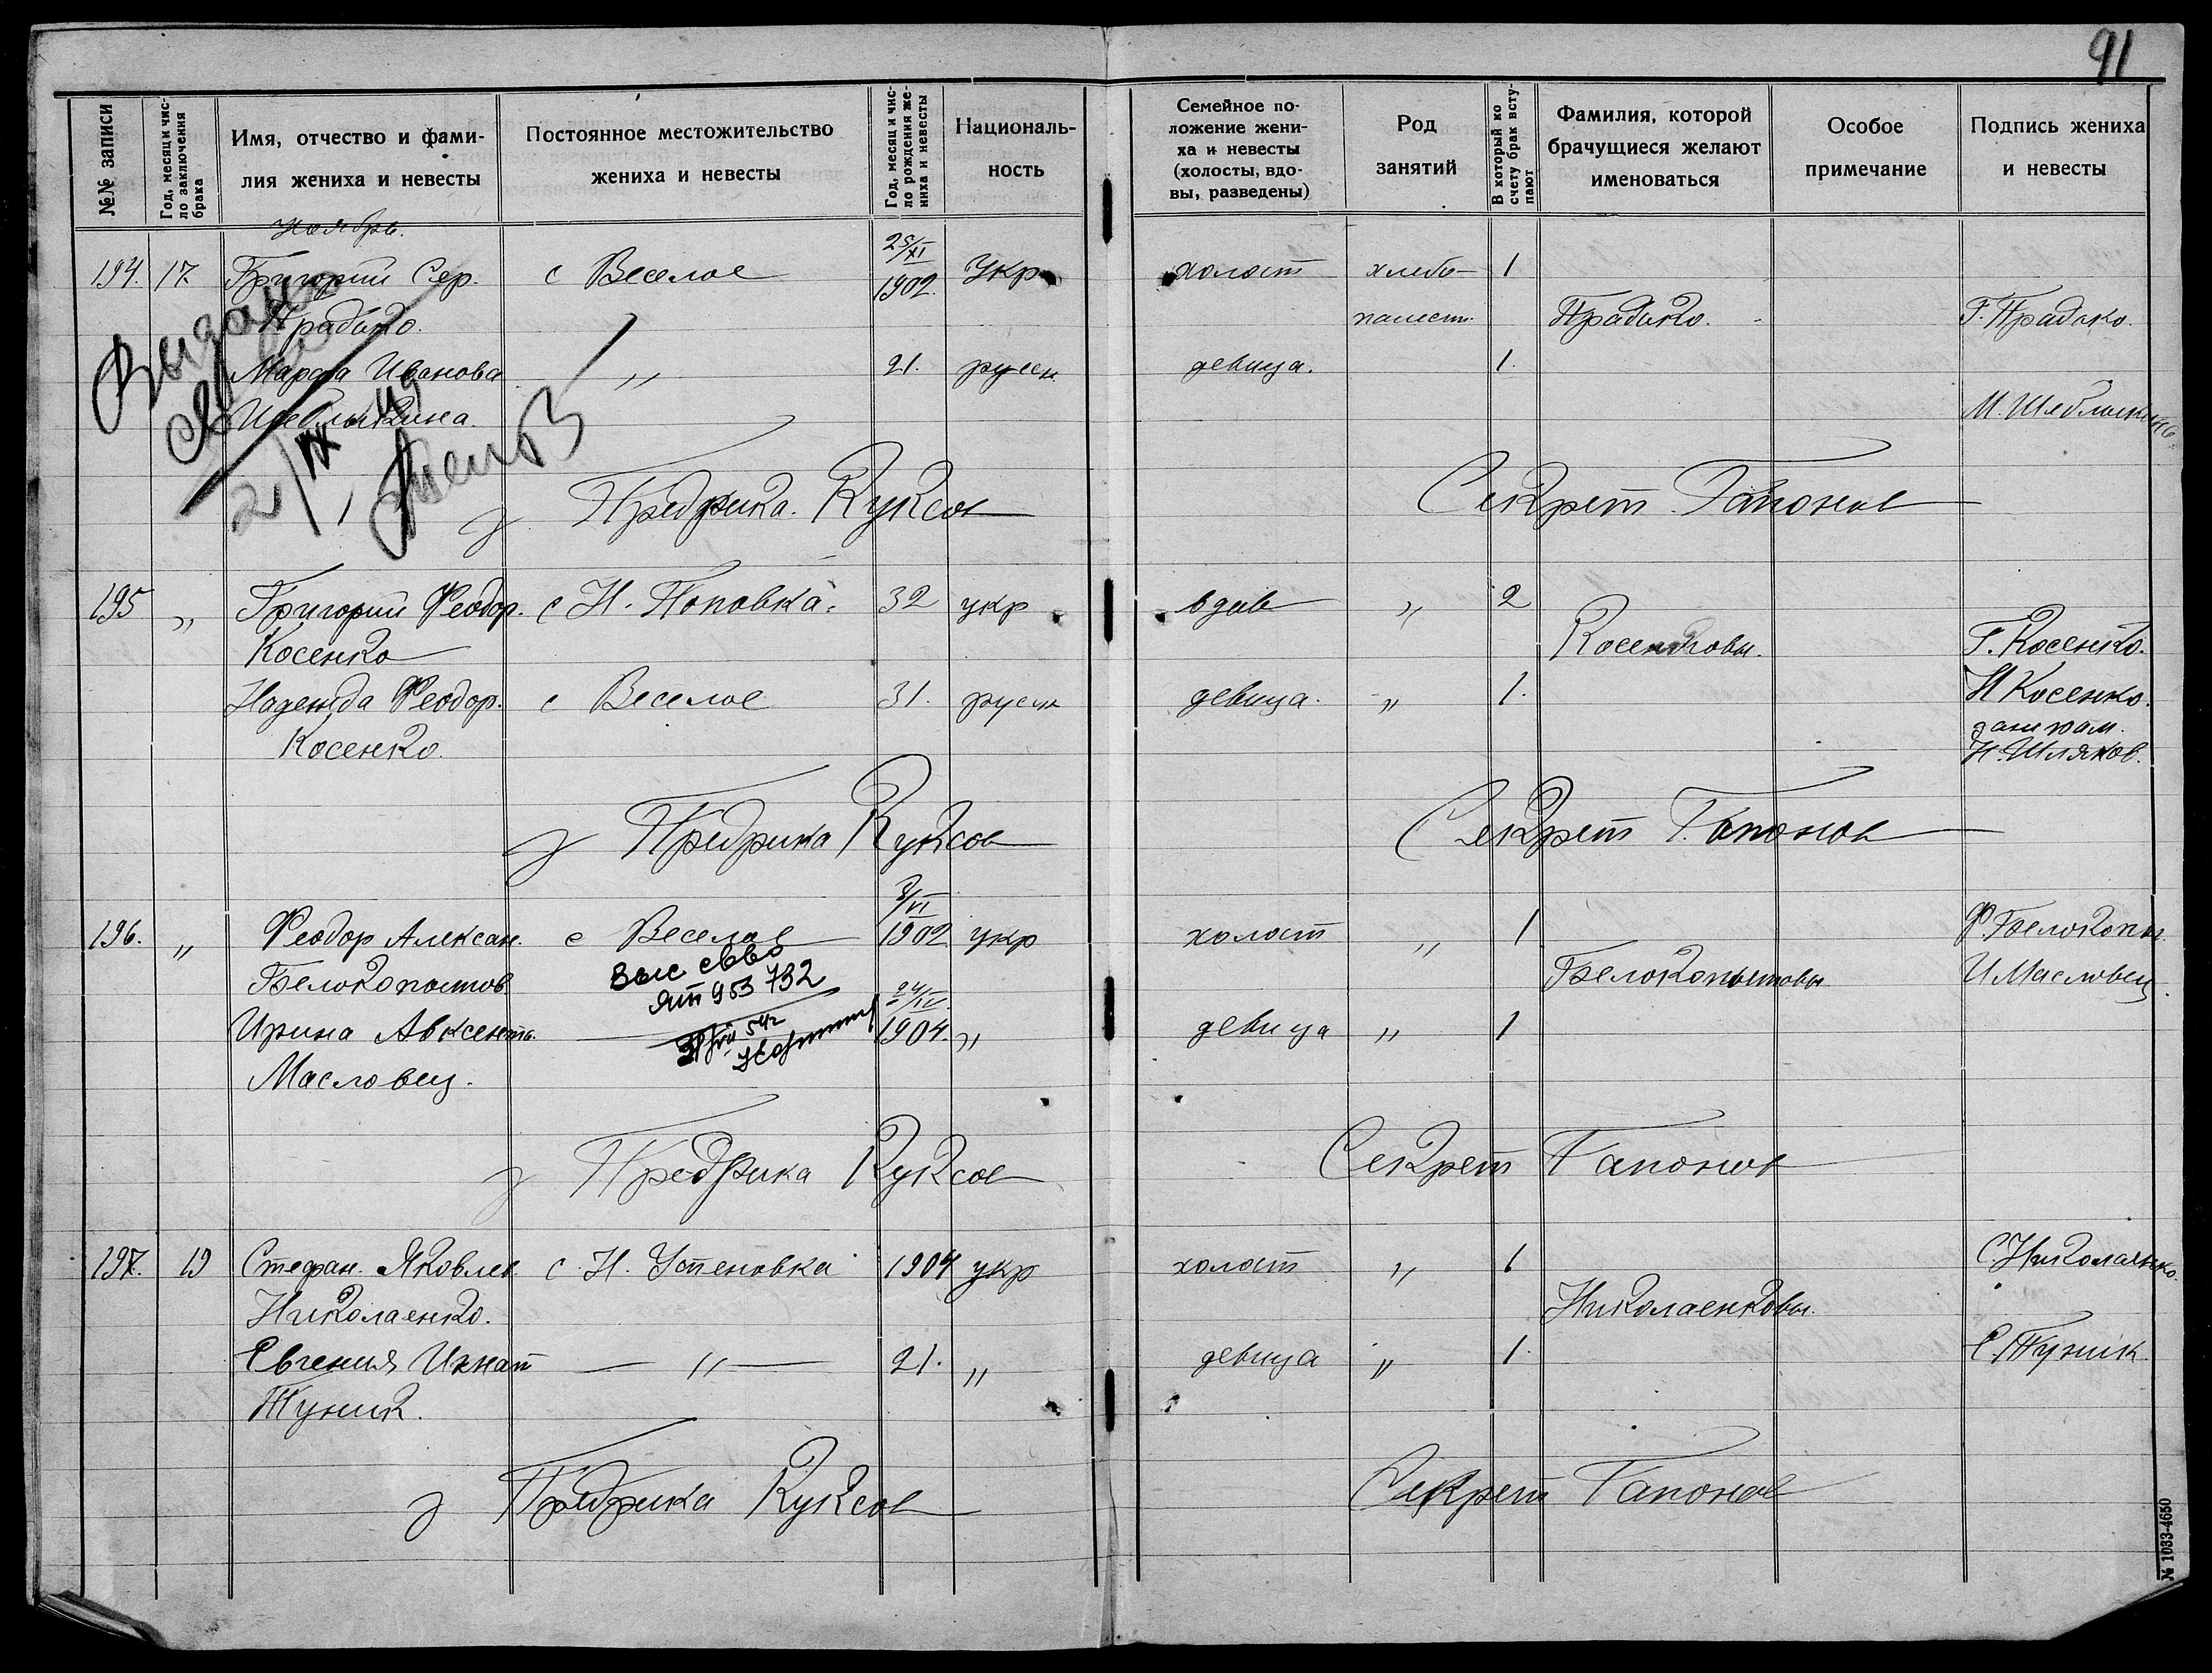 91
№№ записи
Год, месяц и чис-
ло заключения
брака
Имя, отчество и фами-
лия жениха и невесты
Постоянное местожительство
жениха и невесты
Год, месяц и чис-
ло рождения же-
ниха и невесты
Националь-
ность
Семейное по-
ложение жени-
ха и невесты
(холосты, вдо-
вы, разведены)
Род
занятий
В который ко
счету брак всту-
пают
Фамилия, которой
брачущиеся желают
именоваться
Особое
примечание
Подпись жениха
и невесты
Ноябрь.
194. 17 Григорий Сер. с Веселое 25/XI 1902 Укр холост хлебо- 1
Прадько. пашест. Прадько. Г. Прадько.
Марфа Иванова " 21. русск девица. 1.
Шеблыкина. М. Шеблыкина
Выдано
св-во
21/IX 49
з Предрика. Куксов Секрет. Гапонов
195 " Григорий Феодор. с Н. Поповка. 32 укр вдов " 2
Косенко Косенковы. Г. Косенко.
Надежда Феодор. с Веселое 31. русск девица. " 1. Н Косенко.
Косенко. за неграм.
Н. Шляков.
з Предрика Куксов Секрет Гапонов
196. " Феодор Алексан. с Веселое 3/VI 1902 укр холост " 1 Ф. Белокопы.
Белокопытов. Белокопытовы И Масловец.
Выс св-во
ЯП 953732
Ирина Авксенть. 24/IV 1904. " девица " 1
Масловец.
з Предрика Куксов Секрет Гапонов
197. 19 Стефан. Яковлев. с. Н. Успеновка 1904 укр холост " 1 С Николаенко.
Николаенко. Николаенковы.
Евгения Игнат — " — 21. " девица " 1. Е. Туник
Туник.
з Предрика Куксов Секрет Гапонов
№ 1033-4650